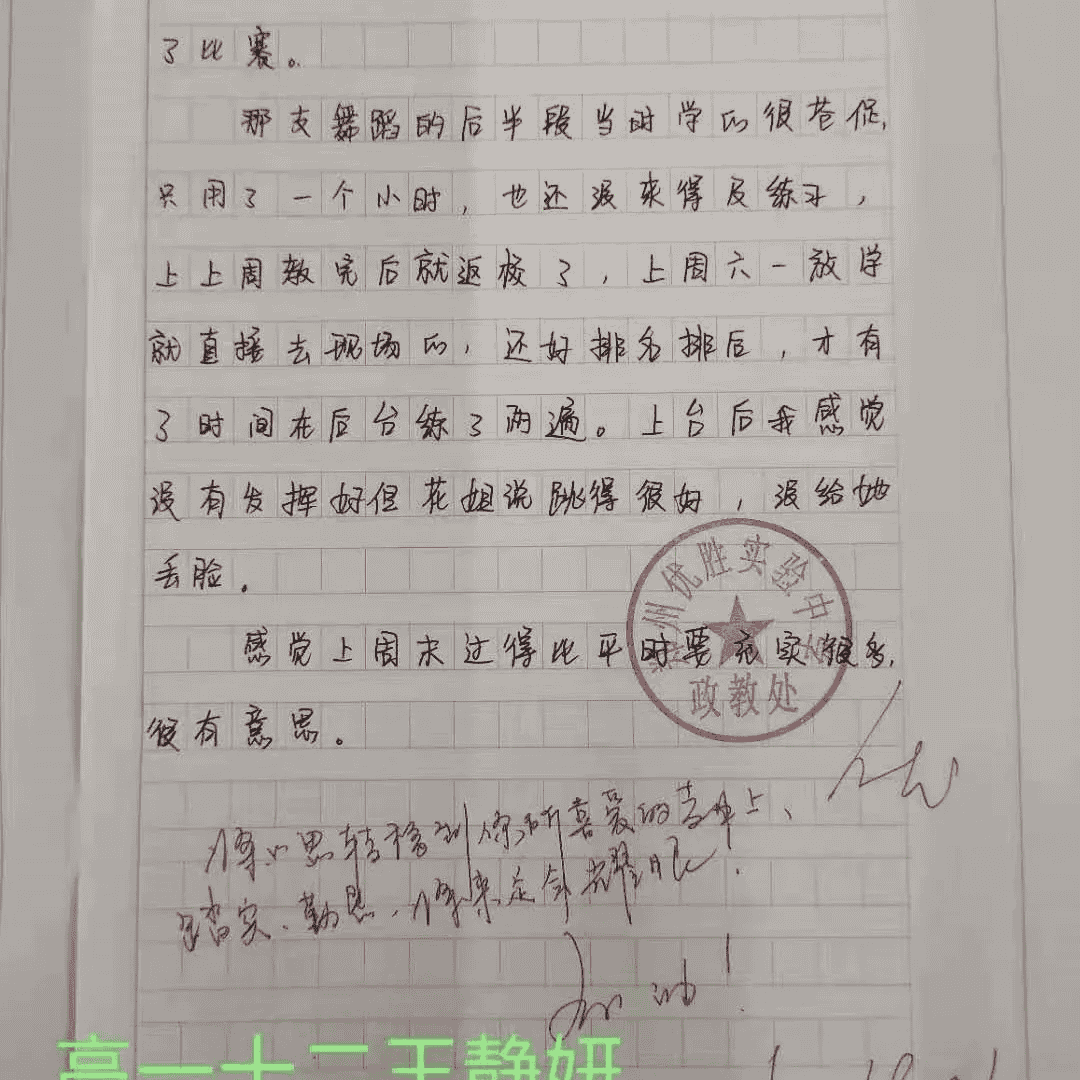 了比赛。
那支舞蹈的后半段当时学的很苍促,
只用了一个小时，也还没来得及练习，
上上周教完后就返校了，上周六一放学
就直接去现场的，还好排名排后，才有
了时间在后台练了两遍。上台后我感觉
没有发挥好但花姐说跳得很好，没给她
丢脸。
感觉上周末过得比平时要充实很多,
很有意思。
州优胜实验中学
政教处
优
将心思转移到你所喜爱的事业上、
踏实、勤恳、将来定会耀眼！
加油！
高一十二王静妍